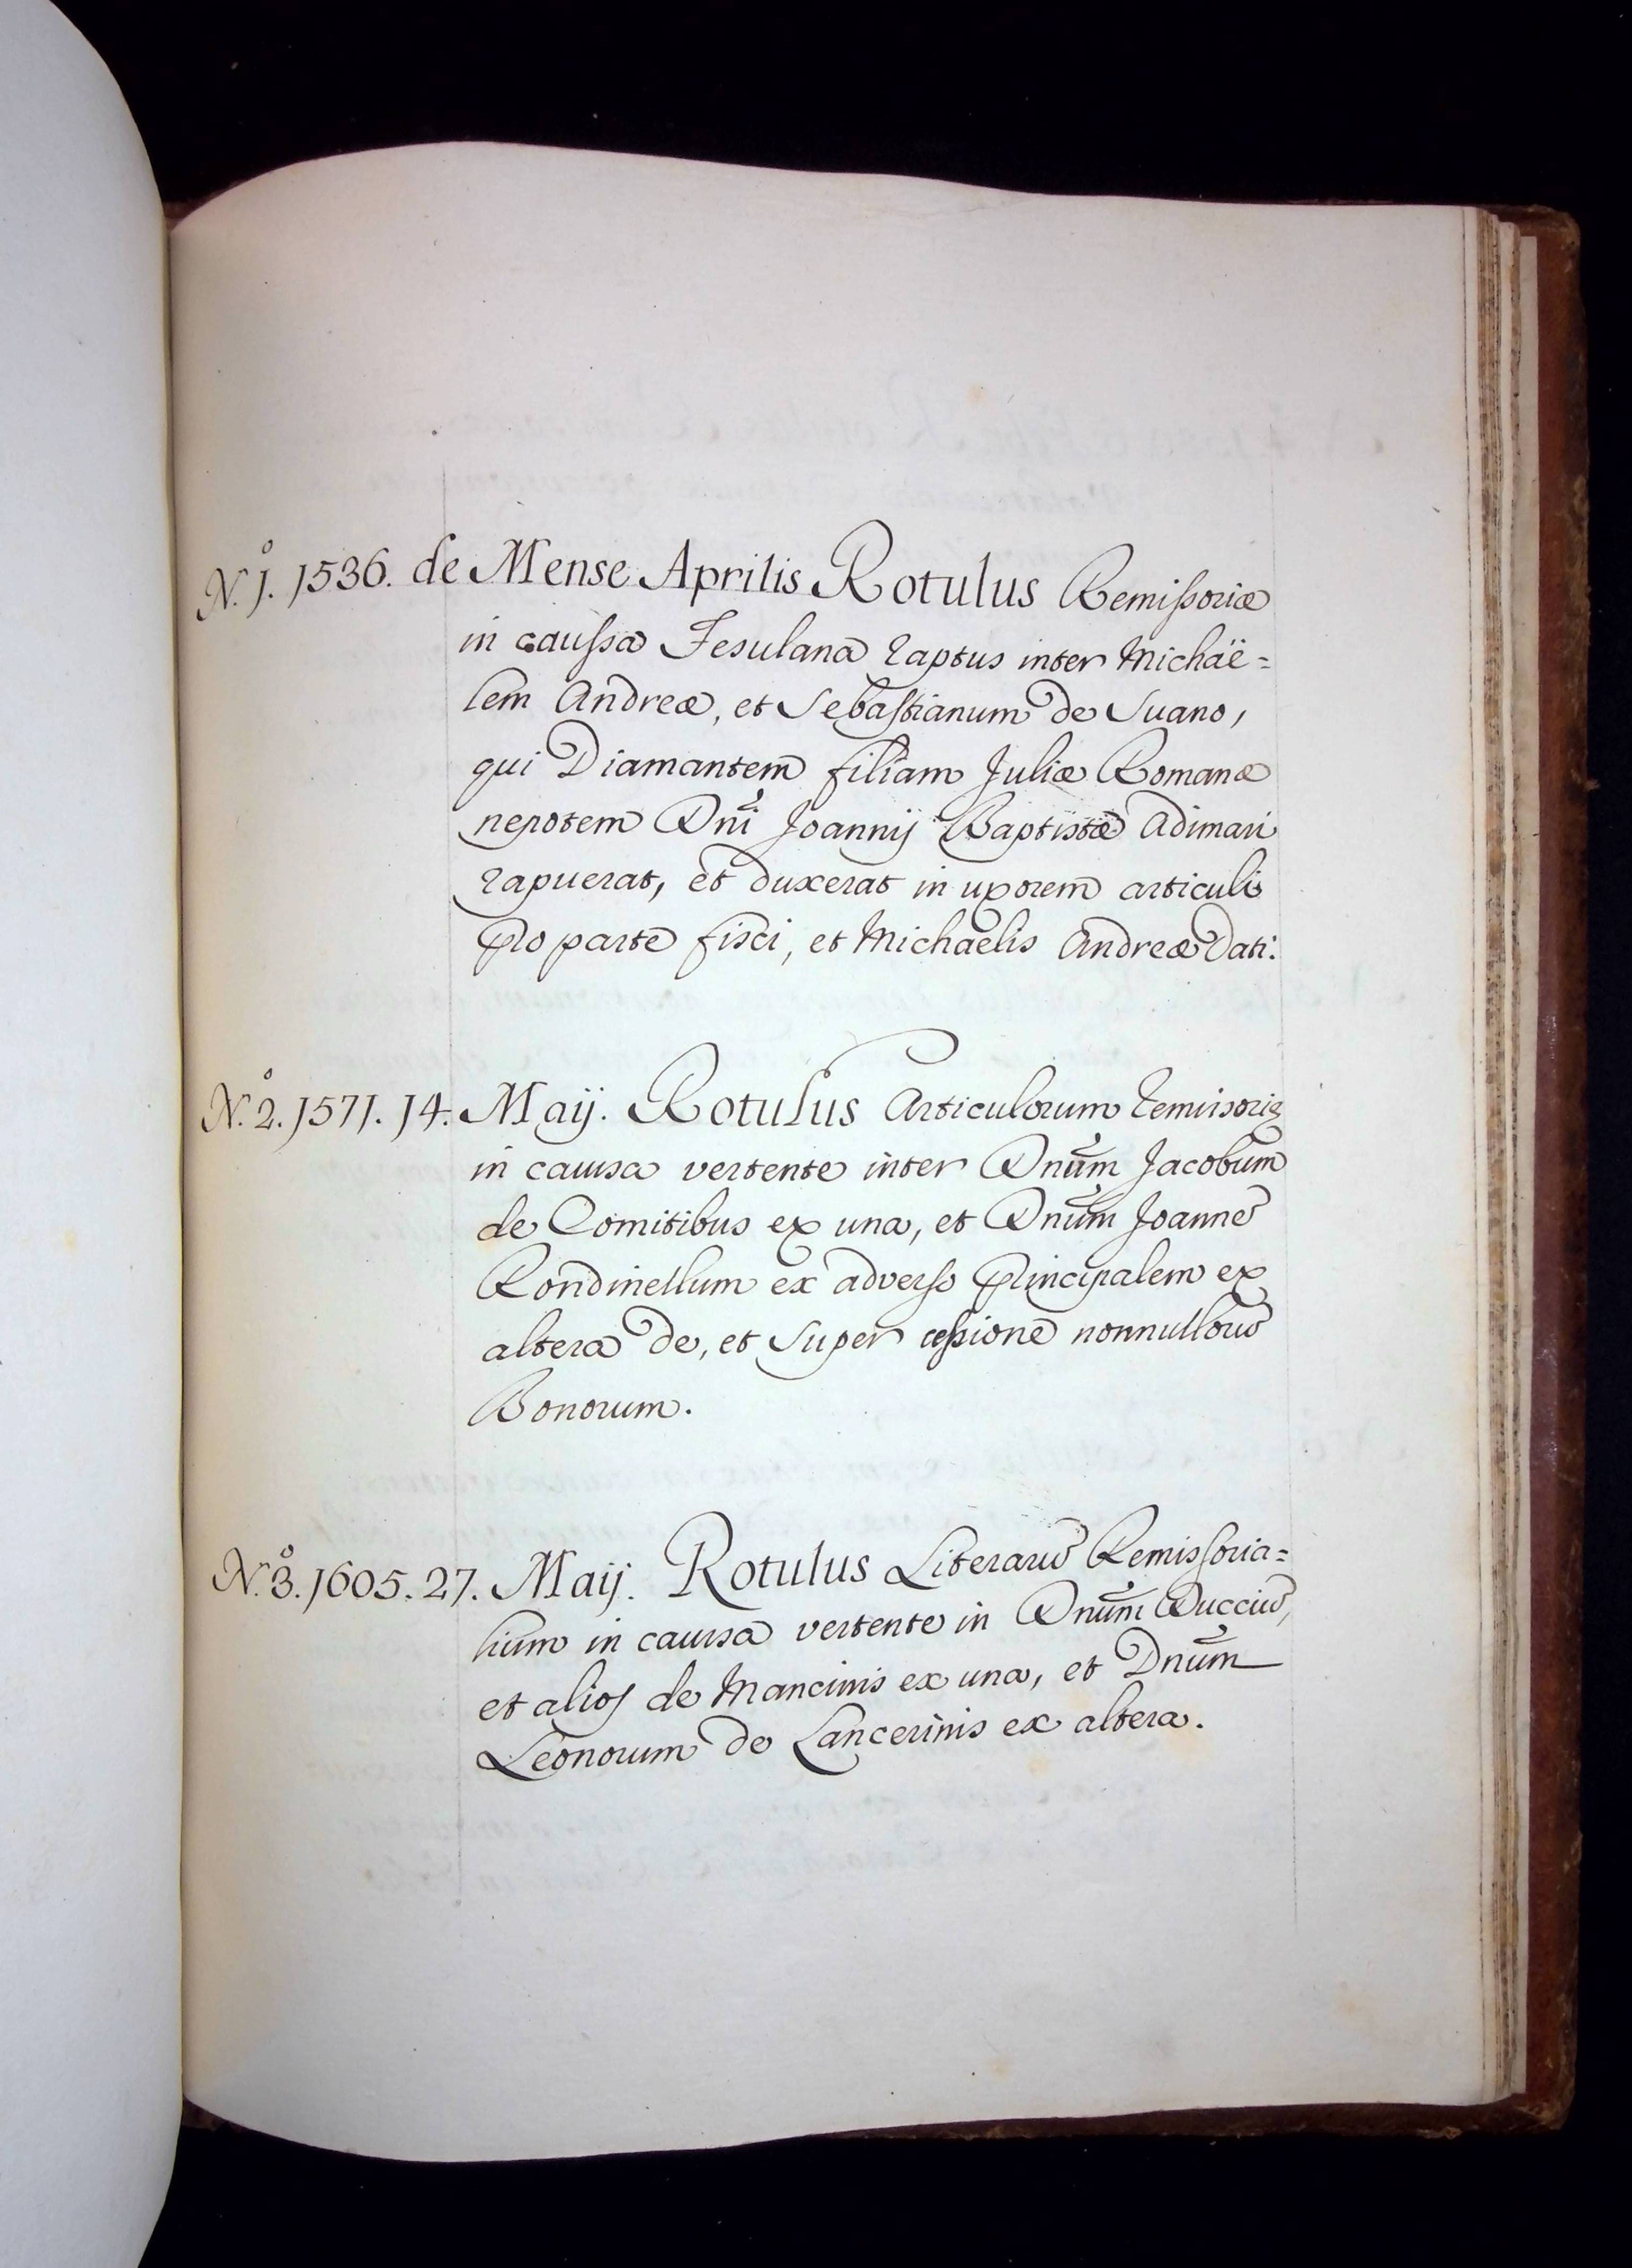 N.º 1. 1536. de Mense Aprilis Rotulus Remissoriæ
in caussa Fesulana raptus inter Michaë=
lem Andreæ, et Sebastianum de Suano,
qui Diamantem filiam Juliæ Romanæ
nepotem Dñi Joannij Baptistæ Adimari
rapuerat, et duxerat in uxorem articulis
pro parte fisci, et Michaelis Andreæ Dati.
N.º 2. 1571. 14. Maij. Rotulus Articulorum remisoriæ
in causa vertente inter Dnũm Jacobum
de Comitibus ex una, et Dnũm Joannē
Rondinellum ex adverso principalem ex
altera de, et super cessione nonnullorū
Bonorum.
N.º 3. 1605. 27. Maij. Rotulus Literarū Remissoria=
lium in causa vertente in Dnũm Ducciū,
et alios de Mancinis ex una, et Dnũm
Leonorum de Lancerinis ex altera.